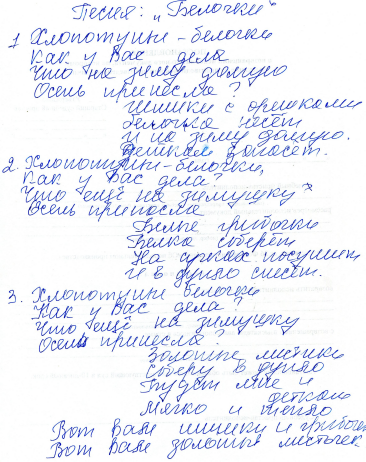 Песня: „Белочки"
1 Хлопотуньи - белочки
Как у Вас дела
Что на зиму долгую
Осень принесла?
Шишки с орешками
белочка несёт
И на зиму долгую.
Деткам запасет.
2. Хлопотуньи - белочки,
Как у Вас дела?
Что ещё на зимушку
Осень принесла
Белые грибочки
Белка соберёт
На сучках посушит
И в дупло снесёт.
3. Хлопотуньи белочки
Как у Вас дела?
Что ещё на зимушку
Осень принесла?
Золотые листики
Соберу в дупло
Будет мне и
деткам
Мягко и тепло
Вот Вам шишки и грибочек
Вот Вам золотые листочек